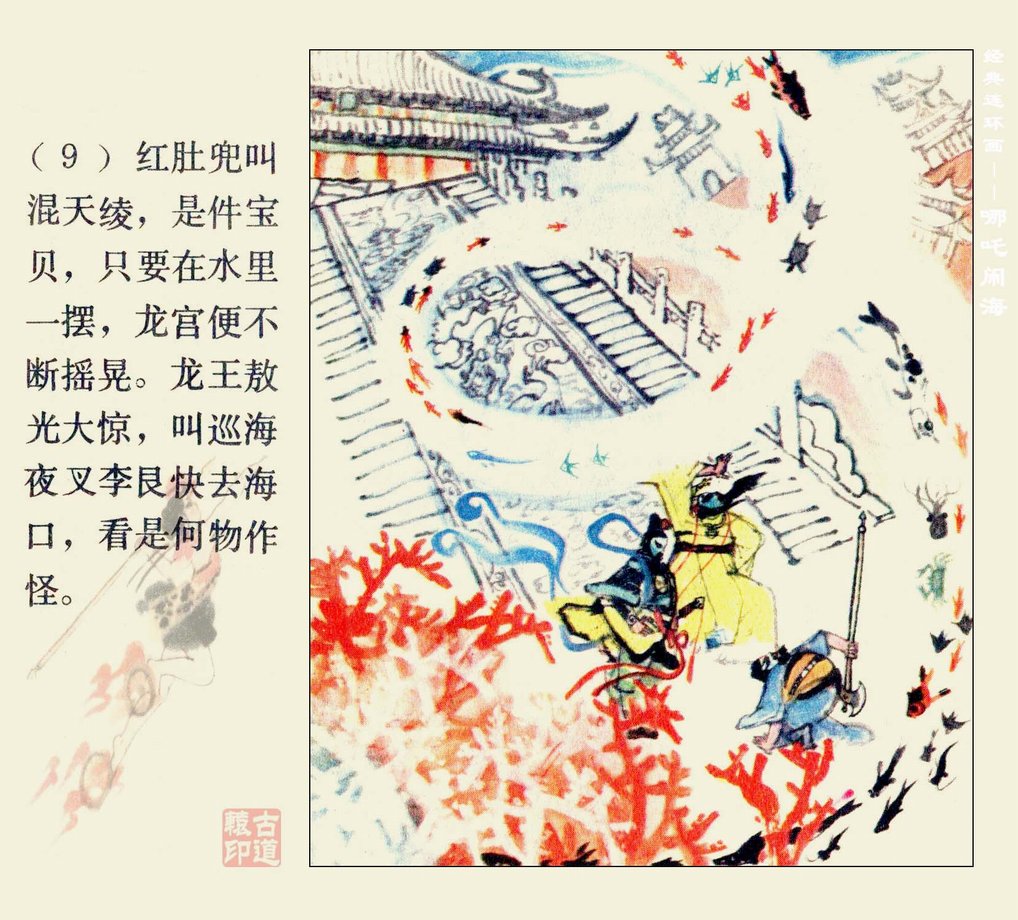 （9）红肚兜叫
混天绫，是件宝
贝，只要在水里
一摆，龙宫便不
断摇晃。龙王敖
光大惊，叫巡海
夜叉李艮快去海
口，看是何物作
怪。
经典连环画——哪吒闹海
古道
辕印